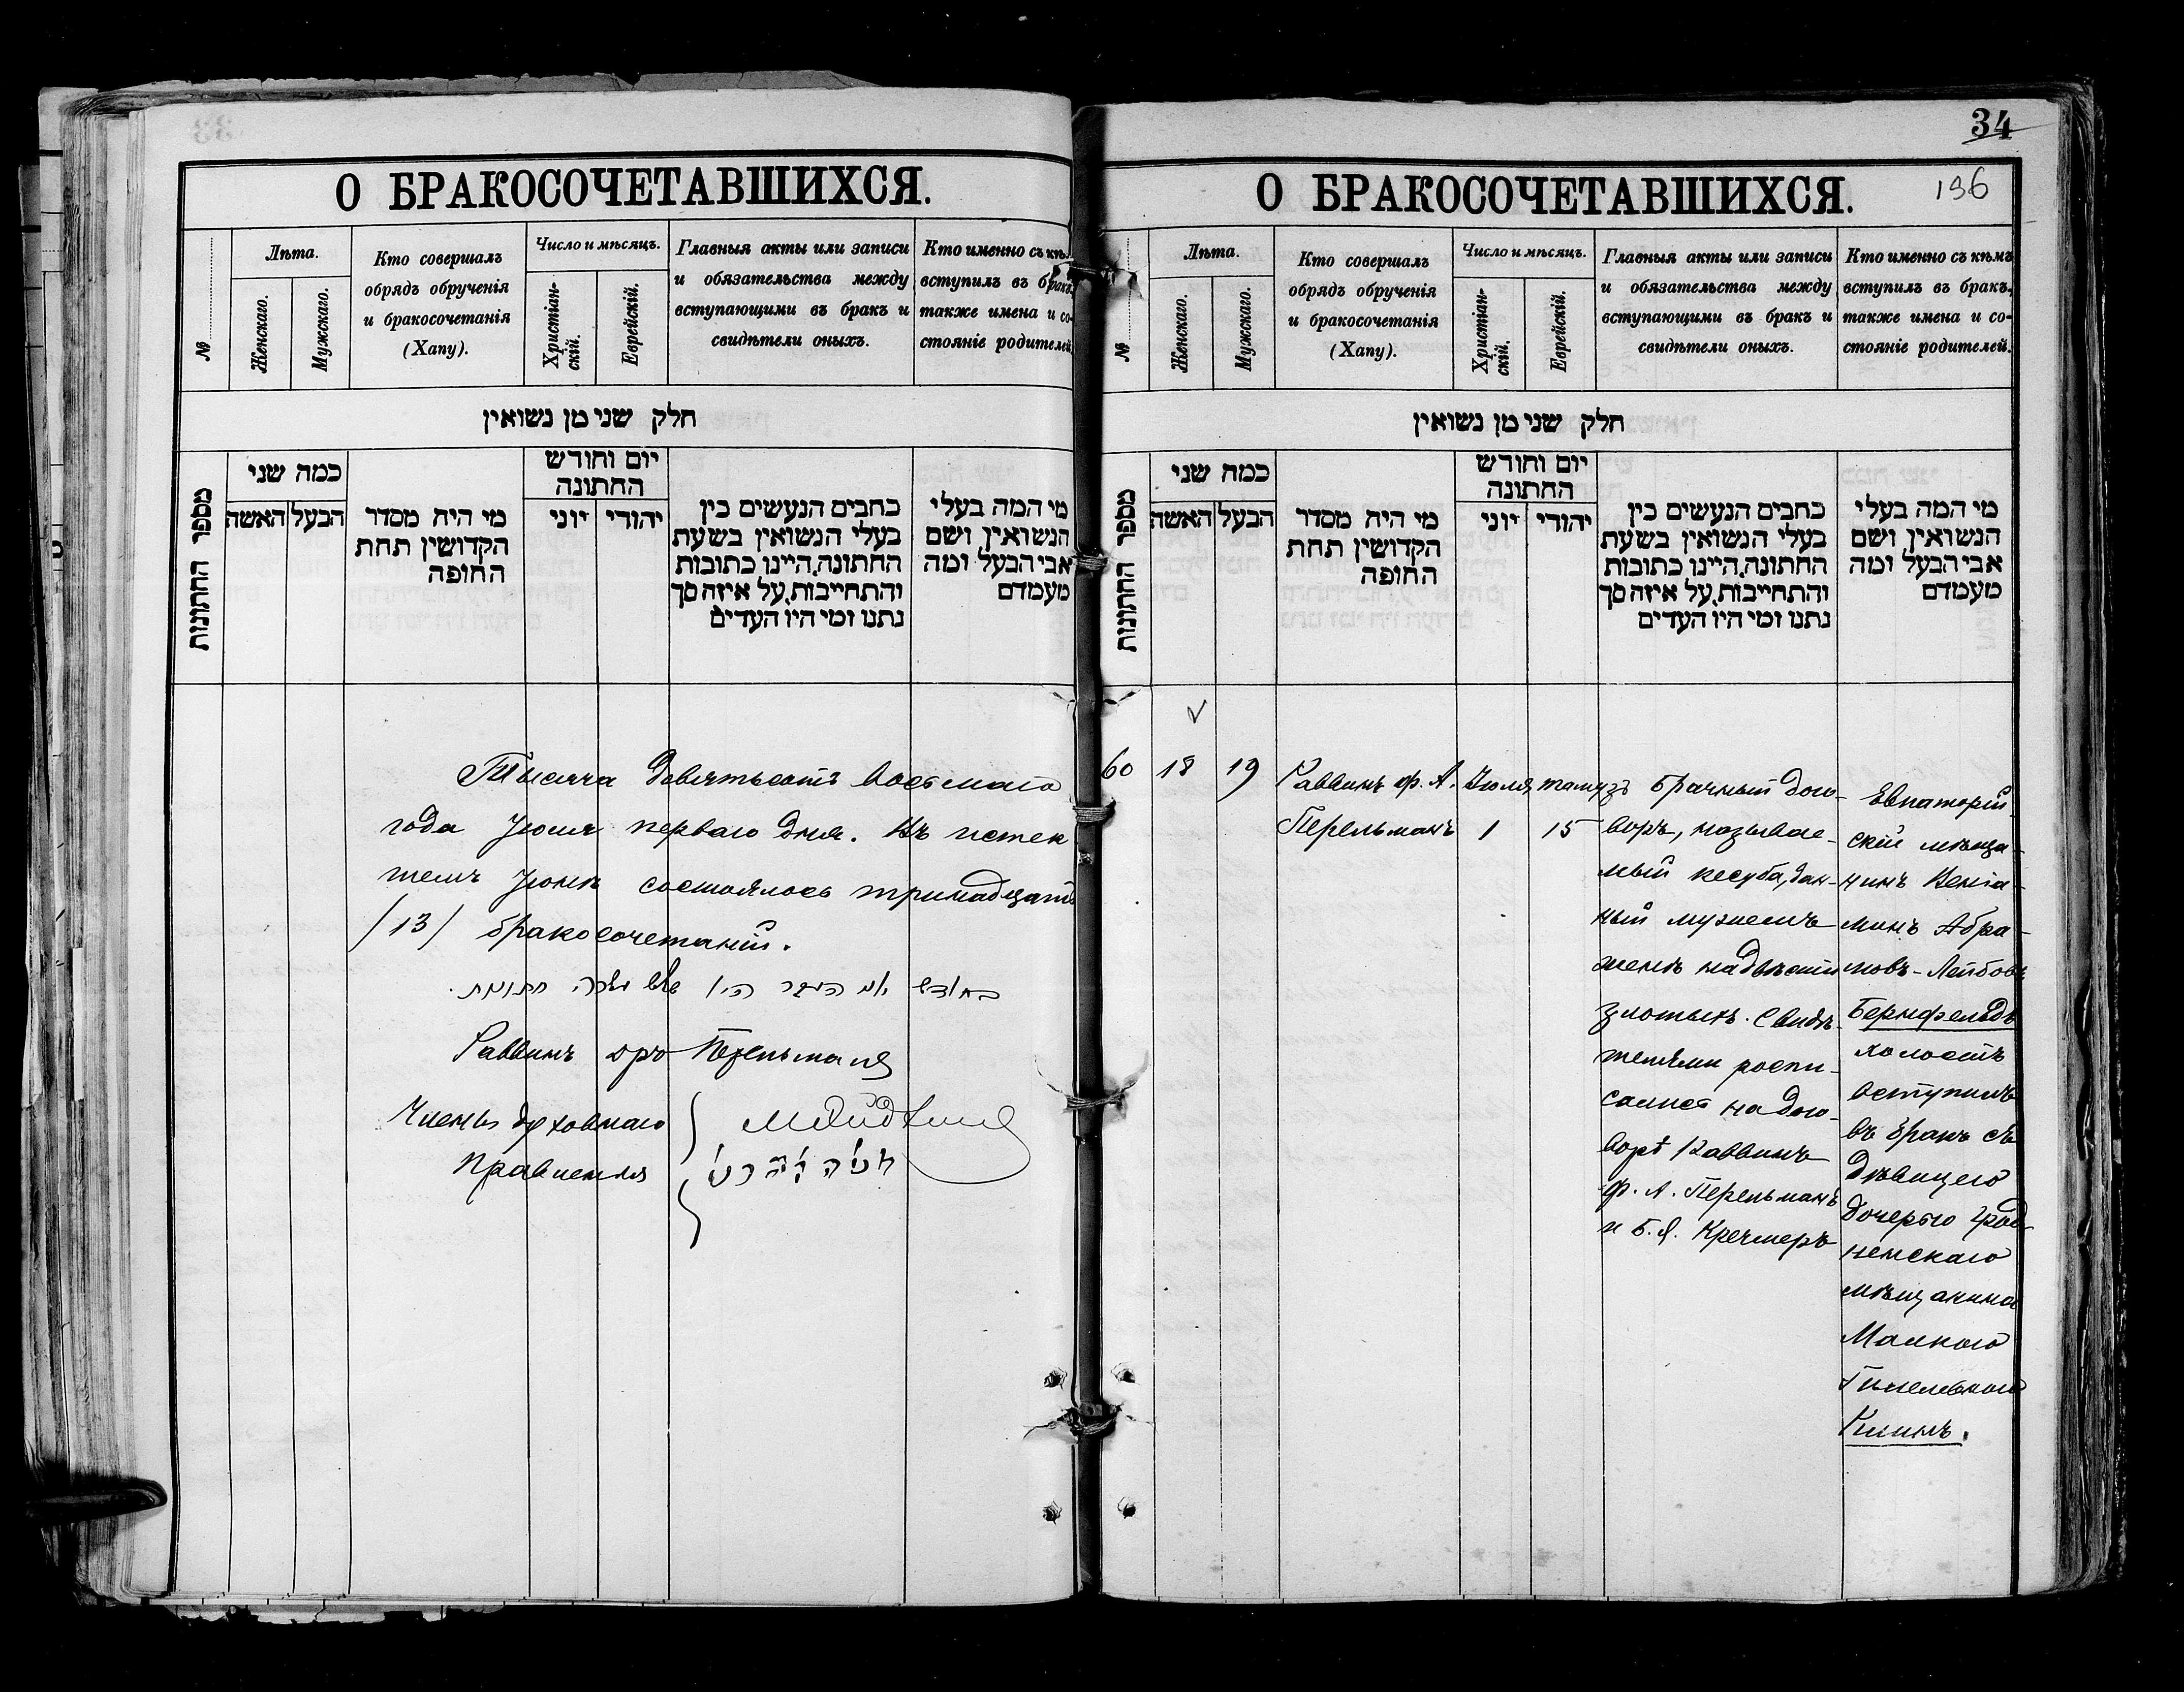 О БРАКОСОЧЕТАВШИХСЯ.
№
Лѣта.
Женскаго.
Мужскаго.
Кто совершалъ
обрядъ обрученія
и бракосочетанія
(Хапу).
Число и мѣсяцъ.
Христіан-
скій.
Еврейскій.
Главныя акты или записи
и обязательства между
вступающими въ бракъ и
свидѣтели оныхъ.
Кто именно съ кѣ
вступилъ въ бракъ,
также имена и со-
стояніе родителей.
חלק שני מן נשואין
מספר החתונות
כמה שני
הבעל
האשה
מי היה מסדר
הקדושין תחת
החופה
יום וחודש
החתונה
יהודי
יוני
כתבים הנעשים בין
בעלי הנשואין בשעת
החתונה, היינו כתובות
והתחייבות, על איזה סך
נתנו ומי היו העדים
מי המה בעלי
הנשואין ושם
אבי הבעל ומה
מעמדם
Тысяча девятьсотъ восьмаго
года Іюля перваго дня. Въ истек
шемъ Іюнѣ состоялось тринадцать
/13/ бракосочетаній.
שלש עשרה חתונות.
Раввинъ дръ Перельманъ
Члены духовнаго
Правленія
34
196
О БРАКОСОЧЕТАВШИХСЯ.
№
Лѣта.
Женскаго.
Мужскаго.
Кто совершалъ
обрядъ обрученія
и бракосочетанія
(Хапу).
Число и мѣсяцъ.
Христіан-
скій.
Еврейскій.
Главныя акты или записи
и обязательства между
вступающими въ бракъ и
свидѣтели оныхъ.
Кто именно съ кѣмъ
вступилъ въ бракъ,
также имена и со-
стояніе родителей.
חלק שני מן נשואין
מספר החתונות
כמה שני
הבעל
האשה
מי היה מסדר
הקדושין תחת
החופה
יום וחודש
החתונה
יהודי
יוני
כתבים הנעשים בין
בעלי הנשואין בשעת
החתונה, היינו כתובות
והתחייבות, על איזה סך
נתנו ומי היו העדים
מי המה בעלי
הנשואין ושם
אבי הבעל ומה
מעמדם
60
18
19
Раввинъ Ф. А.
Перельманъ
Іюля
1
тамузъ
15
Брачный дого-
воръ, называе-
мый кесуба, дан-
ный мужемъ
женѣ на двѣсти
злотыхъ. Свидѣ-
телями роспи-
сались на дого-
ворѣ Раввинъ
Ф. А. Перельманъ
и Б. Я. Кречмеръ
Евпаторій-
скій мѣща-
нинъ Веніа-
минъ Абра-
мовъ-Лейбовъ
Бернфельдъ
холостъ
вступилъ
въ бракъ съ
дѣвицею
дочерью Грод-
ненскаго
мѣщанина
Малкою
Клинъ.